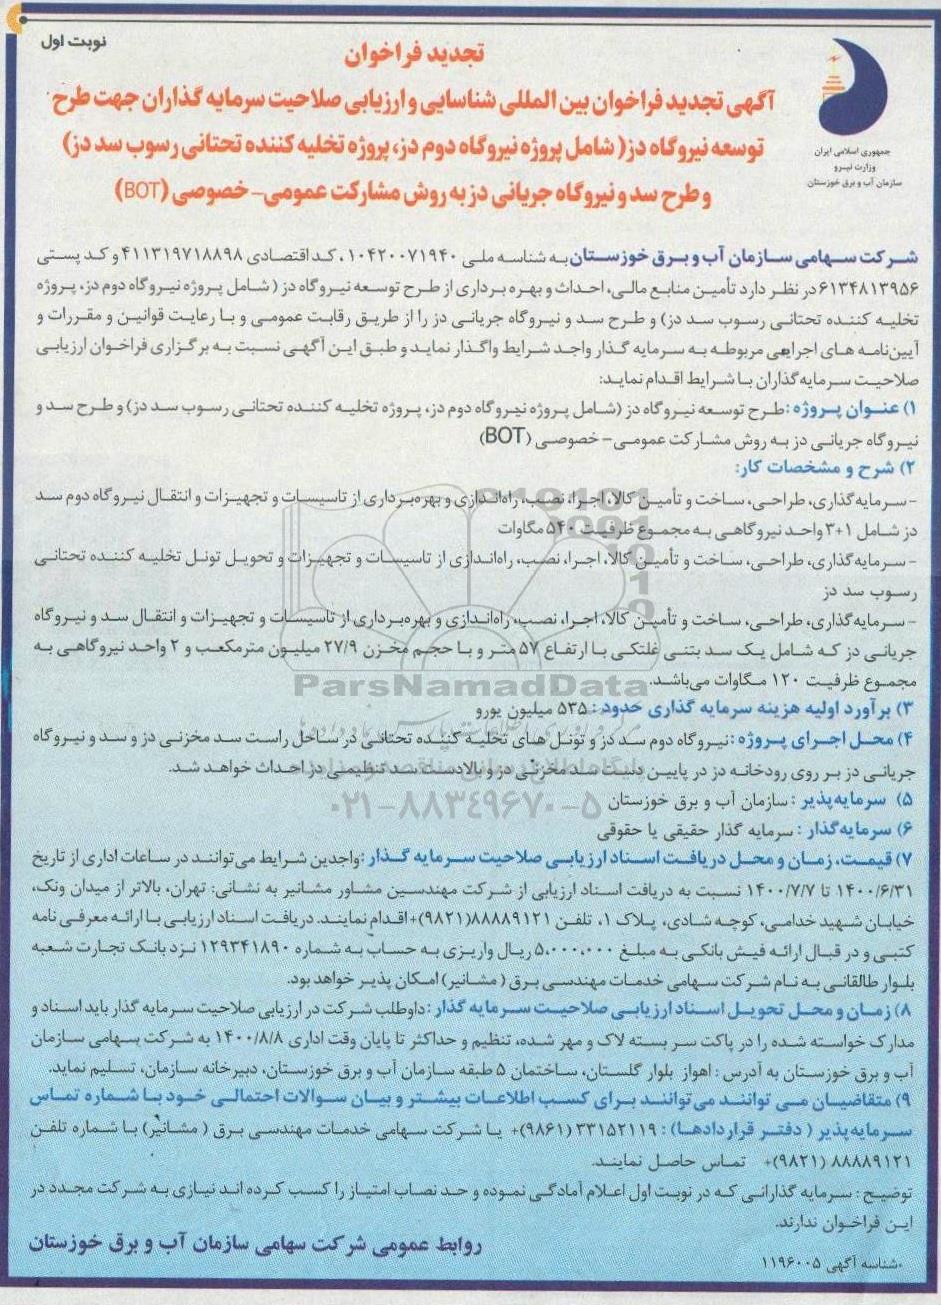 نوبت اول
تجدید فراخوان
آگهی تجدید فراخوان بین المللی شناسایی و ارزیابی صلاحیت سرمایه گذاران جهت طرح
توسعه نیروگاه دز( شامل پروژه نیروگاه دوم دز، پروژه تخلیه کننده تحتانی رسوب سد دز)
و طرح سد و نیروگاه جریانی دز به روش مشارکت عمومی- خصوصی (BOT)
جمهوری اسلامی ایران
وزارت نیرو
سازمان آب و برق خوزستان
شرکت سهامی سازمان آب و برق خوزستان به شناسه ملی ۱۰۴۲۰۰۷۱۹۴۰، کد اقتصادی ۴۱۱۳۱۹۷۱۸۸۹۸ و کد پستی
۶۱۳۴۸۱۳۹۵۶ در نظر دارد تأمین منابع مالی، احداث و بهره برداری از طرح توسعه نیروگاه دز ( شامل پروژه نیروگاه دوم دز، پروژه
تخلیه کننده تحتانی رسوب سد دز) و طرح سد و نیروگاه جریانی دز را از طریق رقابت عمومی و با رعایت قوانین و مقررات و
آیین‌نامه های اجرایی مربوطه به سرمایه گذار واجد شرایط واگذار نماید و طبق این آگهی نسبت به برگزاری فراخوان ارزیابی
صلاحیت سرمایه‌گذاران با شرایط اقدام نماید:
۱) عنوان پروژه :طرح توسعه نیروگاه دز (شامل پروژه نیروگاه دوم دز، پروژه تخلیه کننده تحتانی رسوب سد دز) و طرح سد و
نیروگاه جریانی دز به روش مشارکت عمومی- خصوصی (BOT)
۲) شرح و مشخصات کار:
- سرمایه‌گذاری، طراحی، ساخت و تأمین کالا، اجرا، نصب، راه‌اندازی و بهره‌برداری از تاسیسات و تجهیزات و انتقال نیروگاه دوم سد
دز شامل ۱+۳ واحد نیروگاهی به مجموع ظرفیت ۵۴۰ مگاوات
- سرمایه‌گذاری، طراحی، ساخت و تأمین کالا، اجرا، نصب، راه‌اندازی از تاسیسات و تجهیزات و تحویل تونل تخلیه کننده تحتانی
رسوب سد دز
- سرمایه‌گذاری، طراحی، ساخت و تأمین کالا، اجرا، نصب، راه‌اندازی و بهره‌برداری از تاسیسات و تجهیزات و انتقال سد و نیروگاه
جریانی دز که شامل یک سد بتنی غلتکی با ارتفاع ۵۷ متر و با حجم مخزن ۲۷/۹ میلیون مترمکعب و ۲ واحد نیروگاهی به
مجموع ظرفیت ۱۲۰ مگاوات می‌باشد.
ParsNamadData
۳) برآورد اولیه هزینه سرمایه گذاری حدود : ۵۳۵ میلیون یورو
۴) محل اجرای پروژه :نیروگاه دوم سد دز و تونل های تخلیه کننده تحتانی در ساحل راست سد مخزنی دز و سد و نیروگاه
جریانی دز بر روی رودخانه دز در پایین دست سد مخزنی دز و بالادست سد تنظیمی دز احداث خواهد شد.
پایگاه اطلاع رسانی مناقصه و مزایده
۵) سرمایه‌پذیر : سازمان آب و برق خوزستان
۰۲۱-۸۸۳۴۹۶۷۰-۵
۶) سرمایه‌گذار : سرمایه گذار حقیقی یا حقوقی
۷) قیمت، زمان و محل دریافت اسناد ارزیابی صلاحیت سرمایه گذار :واجدین شرایط می‌توانند در ساعات اداری از تاریخ
۱۴۰۰/۶/۳۱ تا ۱۴۰۰/۷/۷ نسبت به دریافت اسناد ارزیابی از شرکت مهندسین مشاور مشانیر به نشانی: تهران، بالاتر از میدان ونک،
خیابان شهید خدامی، کوچه شادی، پلاک ۱، تلفن ۸۸۸۸۹۱۲۱(۹۸۲۱)+اقدام نمایند. دریافت اسناد ارزیابی با ارائه معرفی نامه
کتبی و در قبال ارائه فیش بانکی به مبلغ ۵،۰۰۰،۰۰۰ ریال واریزی به حساب به شماره ۱۲۹۳۴۱۸۹۰ نزد بانک تجارت شعبه
بلوار طالقانی به نام شرکت سهامی خدمات مهندسی برق ( مشانیر) امکان پذیر خواهد بود.
۸) زمان و محل تحویل اسناد ارزیابی صلاحیت سرمایه گذار :داوطلب شرکت در ارزیابی صلاحیت سرمایه گذار باید اسناد و
مدارک خواسته شده را در پاکت سر بسته لاک و مهر شده، تنظیم و حداکثر تا پایان وقت اداری ۱۴۰۰/۸/۸ به شرکت سهامی سازمان
آب و برق خوزستان به آدرس : اهواز بلوار گلستان، ساختمان ۵ طبقه سازمان آب و برق خوزستان، دبیرخانه سازمان، تسلیم نماید.
۹) متقاضیان می توانند می‌توانند برای کسب اطلاعات بیشتر و بیان سوالات احتمالی خود با شماره تماس
سرمایه‌پذیر ( دفتر قراردادها) : ۳۳۱۵۲۱۱۹ (۹۸۶۱)+ یا شرکت سهامی خدمات مهندسی برق ( مشانیر) با شماره تلفن
۸۸۸۸۹۱۲۱ (۹۸۲۱)+ تماس حاصل نمایند.
توضیح : سرمایه گذارانی که در نوبت اول اعلام آمادگی نموده و حد نصاب امتیاز را کسب کرده اند نیازی به شرکت مجدد در
این فراخوان ندارند.
روابط عمومی شرکت سهامی سازمان آب و برق خوزستان
شناسه آگهی ۱۱۹۶۰۰۵